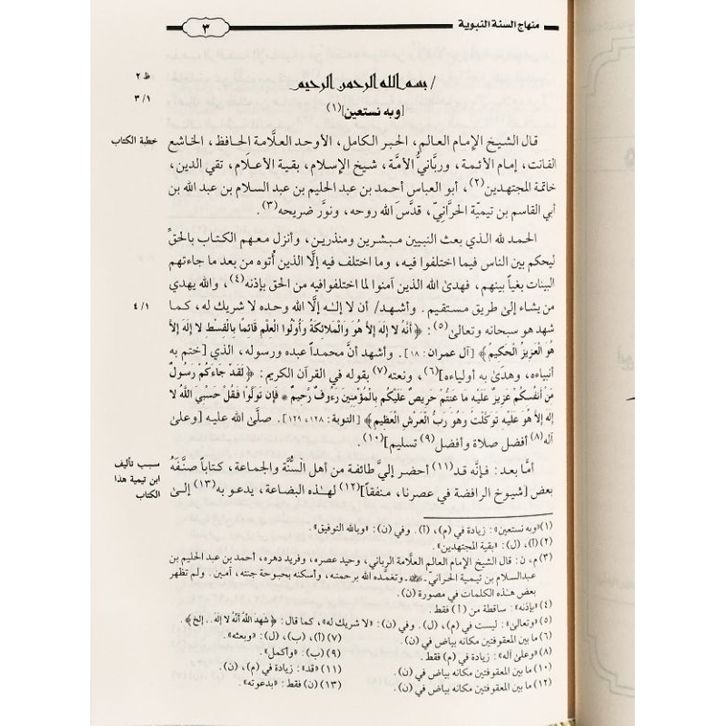 منهاج السنة النبوية
٣
ظ ٢
٣/١
/ بسم الله الرحمن الرحيم
[وبه نستعين](١)
خطبة الكتاب
قال الشيخ الإمام العالم، الحبر الكامل، الأوحد العلَّامة الحافظ، الخاشع
القانت، إمام الأئمة، وربَّانيُّ الأمَّة، شيخ الإسلام، بقية الأعلام، تقي الدين،
خاتمة المجتهدين(٢)، أبو العباس أحمد بن عبد الحليم بن عبد السلام بن عبد الله بن
أبي القاسم بن تيميّة الحرَّانيّ، قدَّس الله روحه، ونوَّر ضريحه(٣).
الحمد لله الذي بعث النبيين مبشرين ومنذرين، وأنزل معهم الكتاب بالحقِّ
ليحكم بين الناس فيما اختلفوا فيه، وما اختلف فيه إلَّا الذين أُتوه من بعد ما جاءتهم
البينات بغياً بينهم، فهدىٰ الله الذين آمنوا لما اختلفوافيه من الحق بإذنه(٤)، والله يهدي
من يشاء إلى طريق مستقيم. وأشهد/ أن لا إلٰه إلَّا الله وحده لا شريك له، كما
٤/١
شهد هو سبحانه وتعالىٰ(٥): ﴿أَنَّهُ لَا إِلَهَ إِلَّا هُوَ وَالْمَلَائِكَةُ وَأُوْلُوا الْعِلْمِ قَائِمًا بِالْقِسْطِ لَا إِلَهَ إِلَّا
هُوَ الْعَزِيزُ الْحَكِيمُ﴾ [آل عمران: ١٨]. وأشهد أنَّ محمداً عبده ورسوله، الذي [ختم به
أنبياءه، وهدىٰ به أولياءه](٦)، ونعته(٧) بقوله في القرآن الكريم: ﴿لَقَدْ جَاءَكُمْ رَسُولٌ
مِنْ أَنفُسِكُمْ عَزِيزٌ عَلَيْهِ مَا عَنِتُّمْ حَرِيصٌ عَلَيْكُم بِالْمُؤْمِنِينَ رَءُوفٌ رَحِيمٌ * فَإِن تَوَلَّوْا فَقُلْ حَسْبِيَ اللَّهُ لَا
إِلَهَ إِلَّا هُوَ عَلَيْهِ تَوَكَّلْتُ وَهُوَ رَبُّ الْعَرْشِ الْعَظِيمِ﴾ [التوبة: ١٢٨، ١٢٩]. صلَّىٰ الله عليه [وعلىٰ
آله(٨) أفضل صلاة وأفضل(٩) تسليم](١٠).
سبب تأليف
ابن تيمية هذا
الكتاب
أمَّا بعد: فإنَّه قد(١١) أحضر إليَّ طائفة من أهل السُّنَّة والجماعة، كتاباً صنَّفَهُ
بعض [شيوخ الرافضة في عصرنا، منفقاً](١٢) لهذه البضاعة، يدعو به(١٣) إلىٰ
(١) «وبه نستعين»: زيادة في (م)، (أ). وفي (ن): «وبالله التوفيق».
(٢) (أ)، (ل): «بقية المجتهدين».
(٣) م، ن: قال الشيخ الإمام العالم العلَّامة الرباني، وحيد عصره، وفريد دهره، أحمد بن عبد الحليم بن
عبدالسلام بن تيمية الحرّاني. وتغمَّده الله برحمته، وأسكنه بحبوحة جنته، آمين. ولم تظهر
بعض هذه الكلمات في مصورة (ن).
(٤) «بإذنه»: ساقطة من (أ) فقط.
(٥) «وتعالىٰ»: ليست في (م)، (ل). وفي (ن): «لا شريك له»، كما قال: ﴿شَهِدَ اللَّهُ أَنَّهُ لَا إِلَهَ.. إلخ﴾.
(٦) ما بين المعقوفتين مكانه بياض في (ن).
(٧) (أ)، (ب)، (ل): «وبعثه».
(٨) «وعلىٰ آله»: زيادة في (م) فقط.
(٩) (ب): «وأكمل».
(١٠) ما بين المعقوفتين مكانه بياض في (ن).
(١١) «قد»: زيادة في (م)، (ن).
(١٢) ما بين المعقوفتين مكانه بياض في (ن).
(١٣) (ن) فقط: «بدعوته».